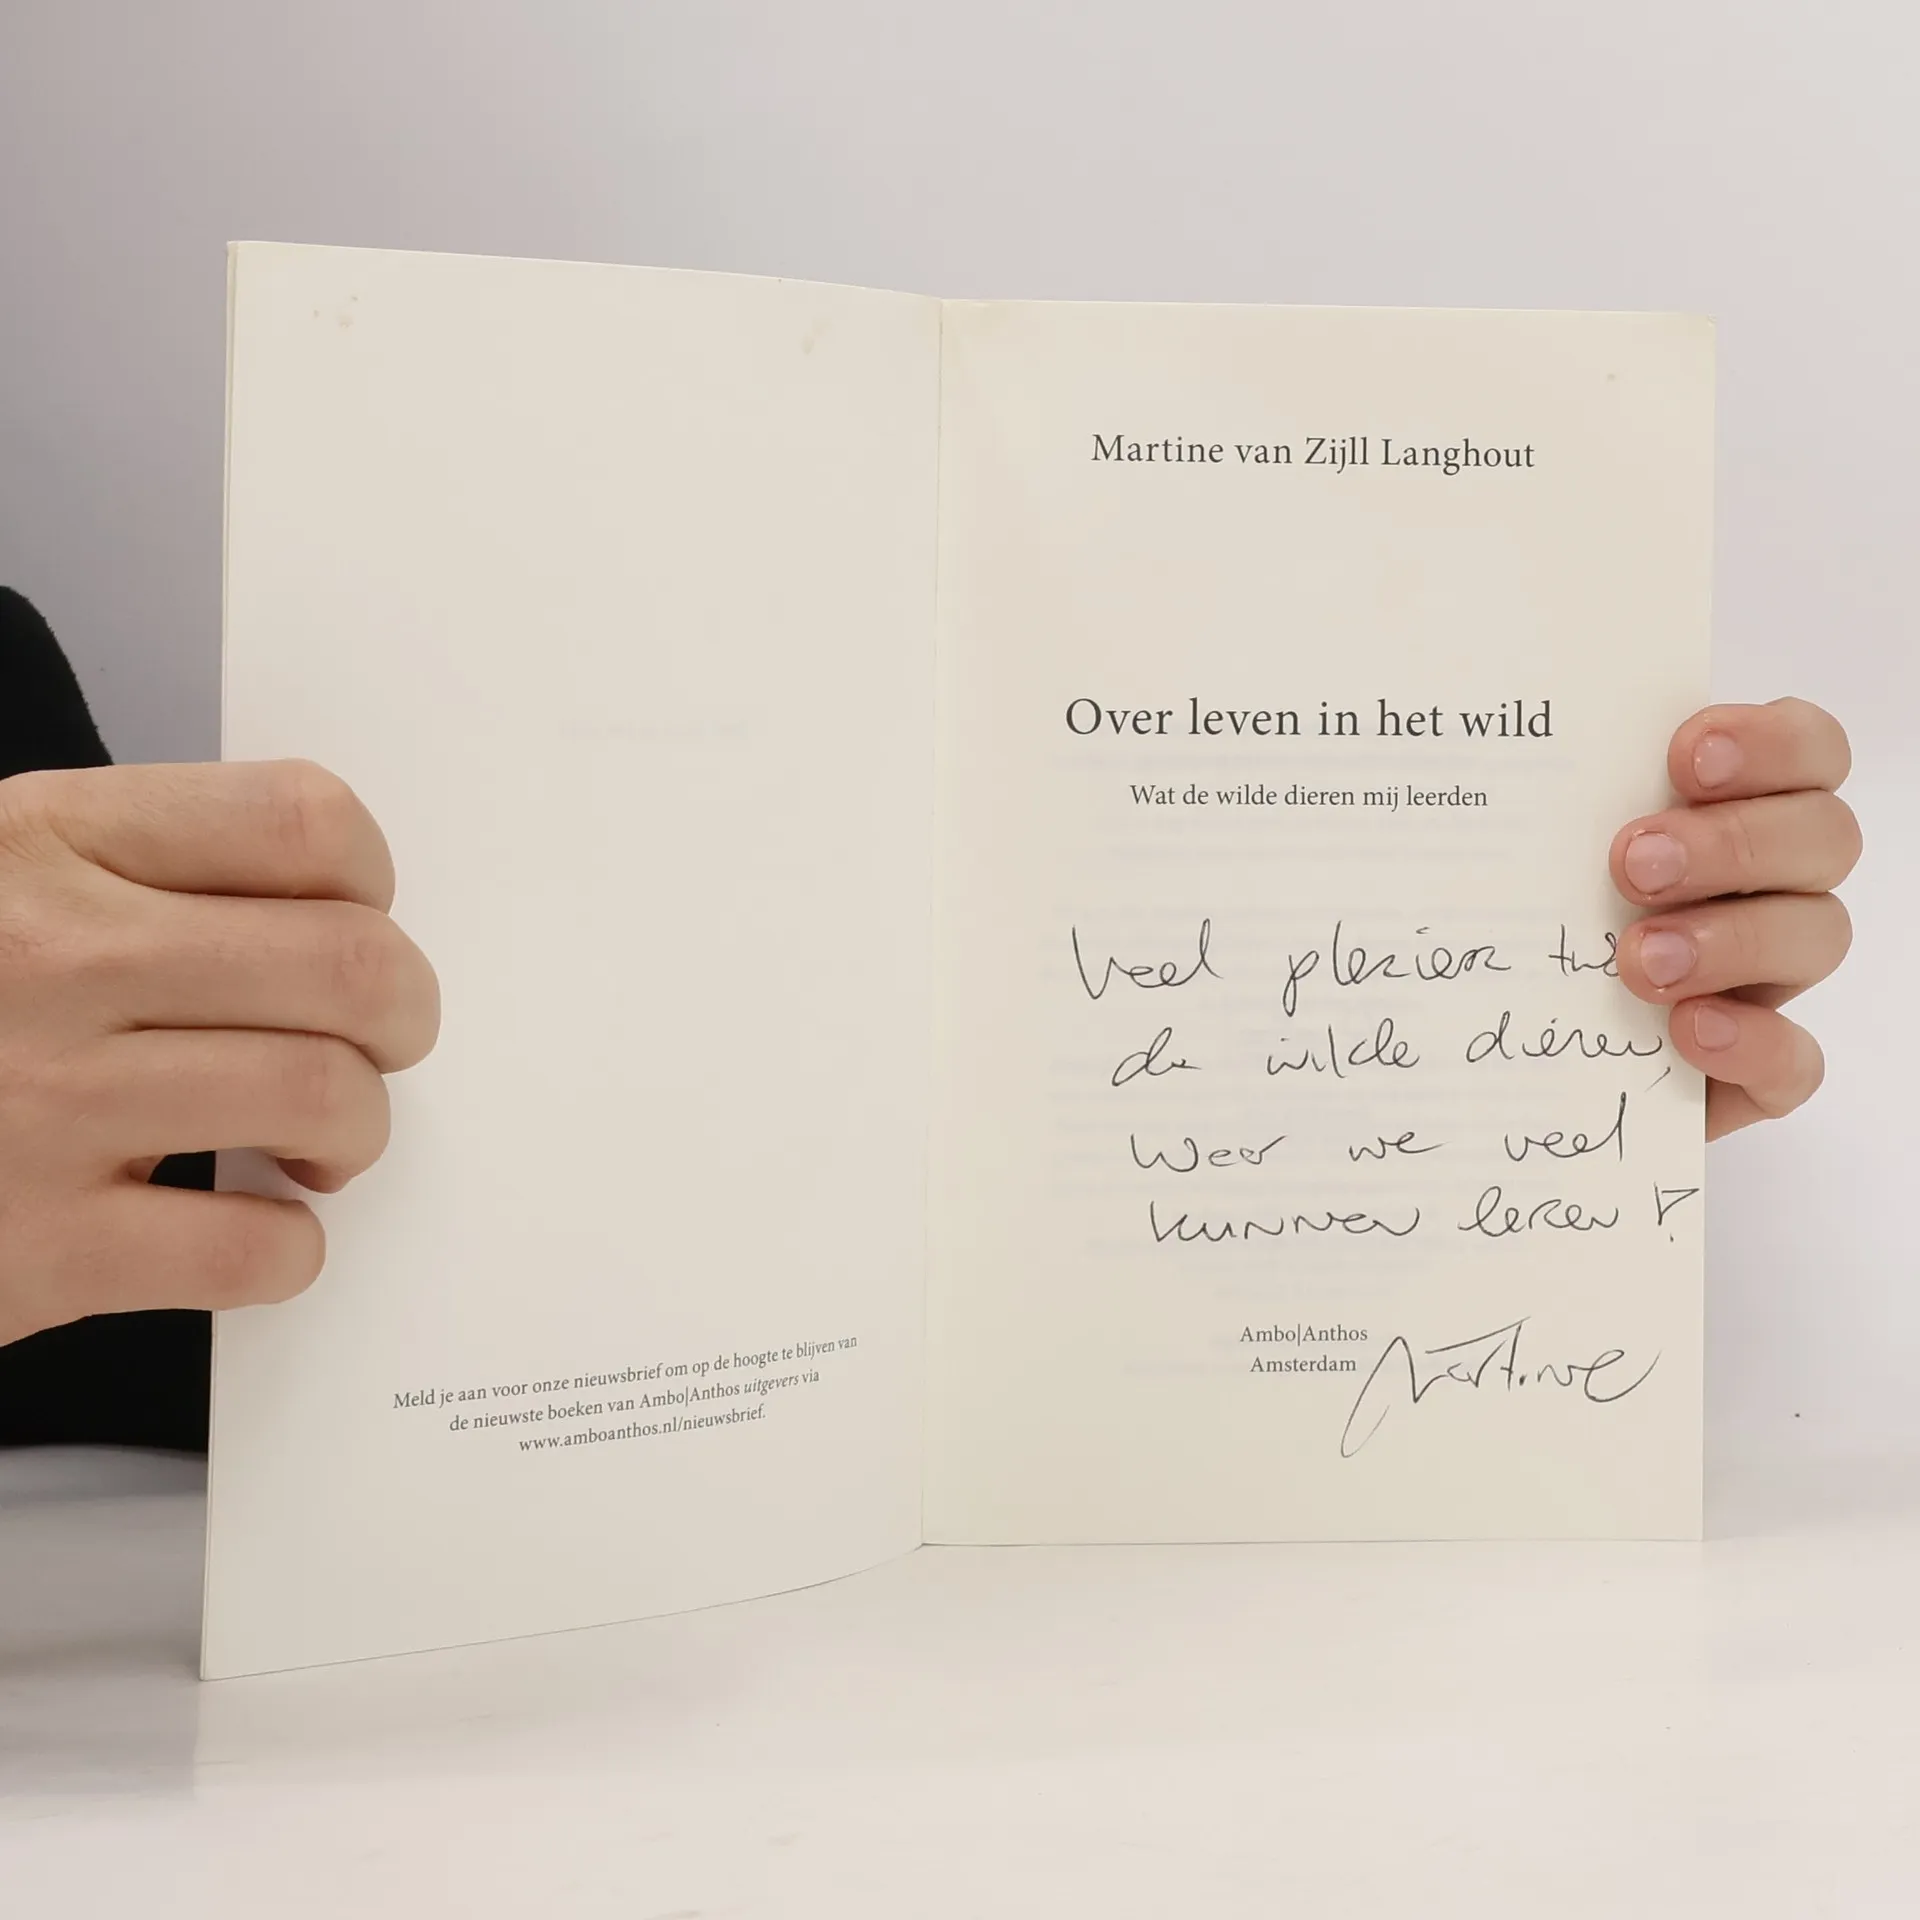 Meld je aan voor onze nieuwsbrief om op de hoogte te blijven van
de nieuwste boeken van Ambo|Anthos uitgevers via
www.amboanthos.nl/nieuwsbrief.
Martine van Zijll Langhout
Over leven in het wild
Wat de wilde dieren mij leerden
Veel plezier
de wilde dieren,
waar we veel
kunnen leren!
Ambo|Anthos
Amsterdam
Martine